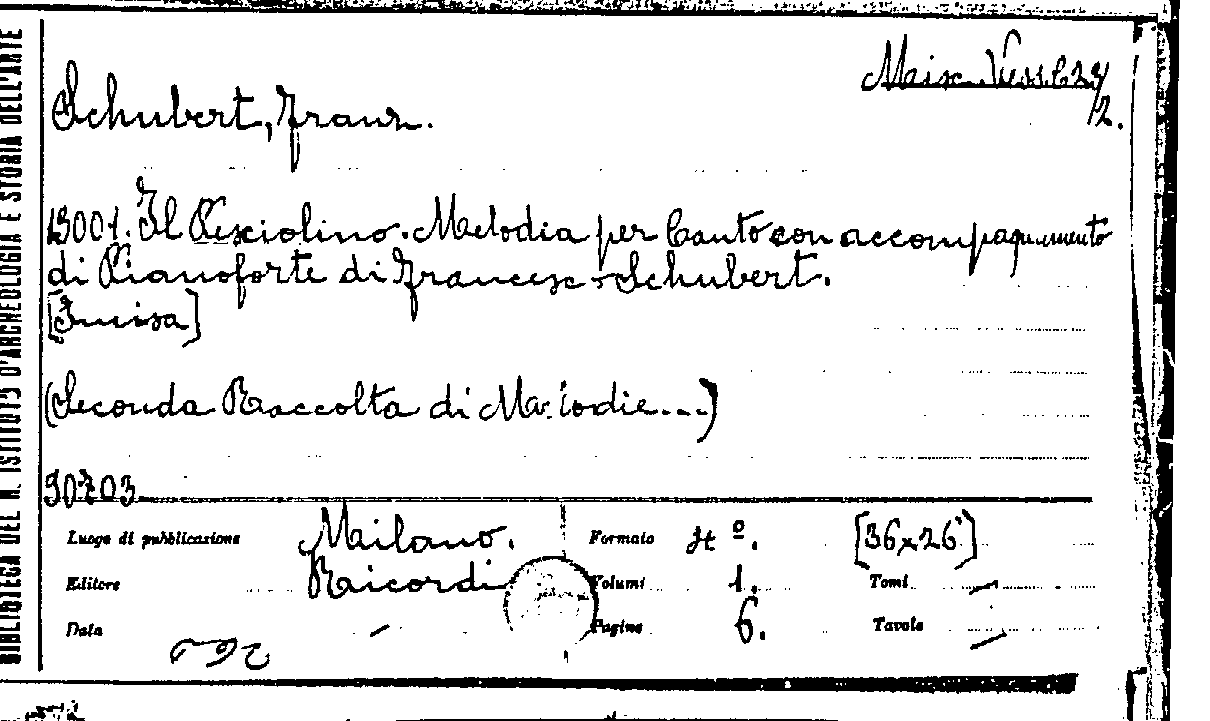 BIBLIOTECA DEL R. ISTITUTO D'ARCHEOLOGIA E STORIA DELL'ARTE
Schubert, Franz.
13001. Il Pesciolino. Melodia per Canto con accompagnamento
di Pianoforte di Francesco Schubert.
[Incisa]
(Seconda Raccolta di Melodie...)
30703
Luogo di pubblicazione Milano. Formato 4º. [36x26]
Editore Ricordi Volumi 1. Tomi —
Data — Pagine 6. Tavole —